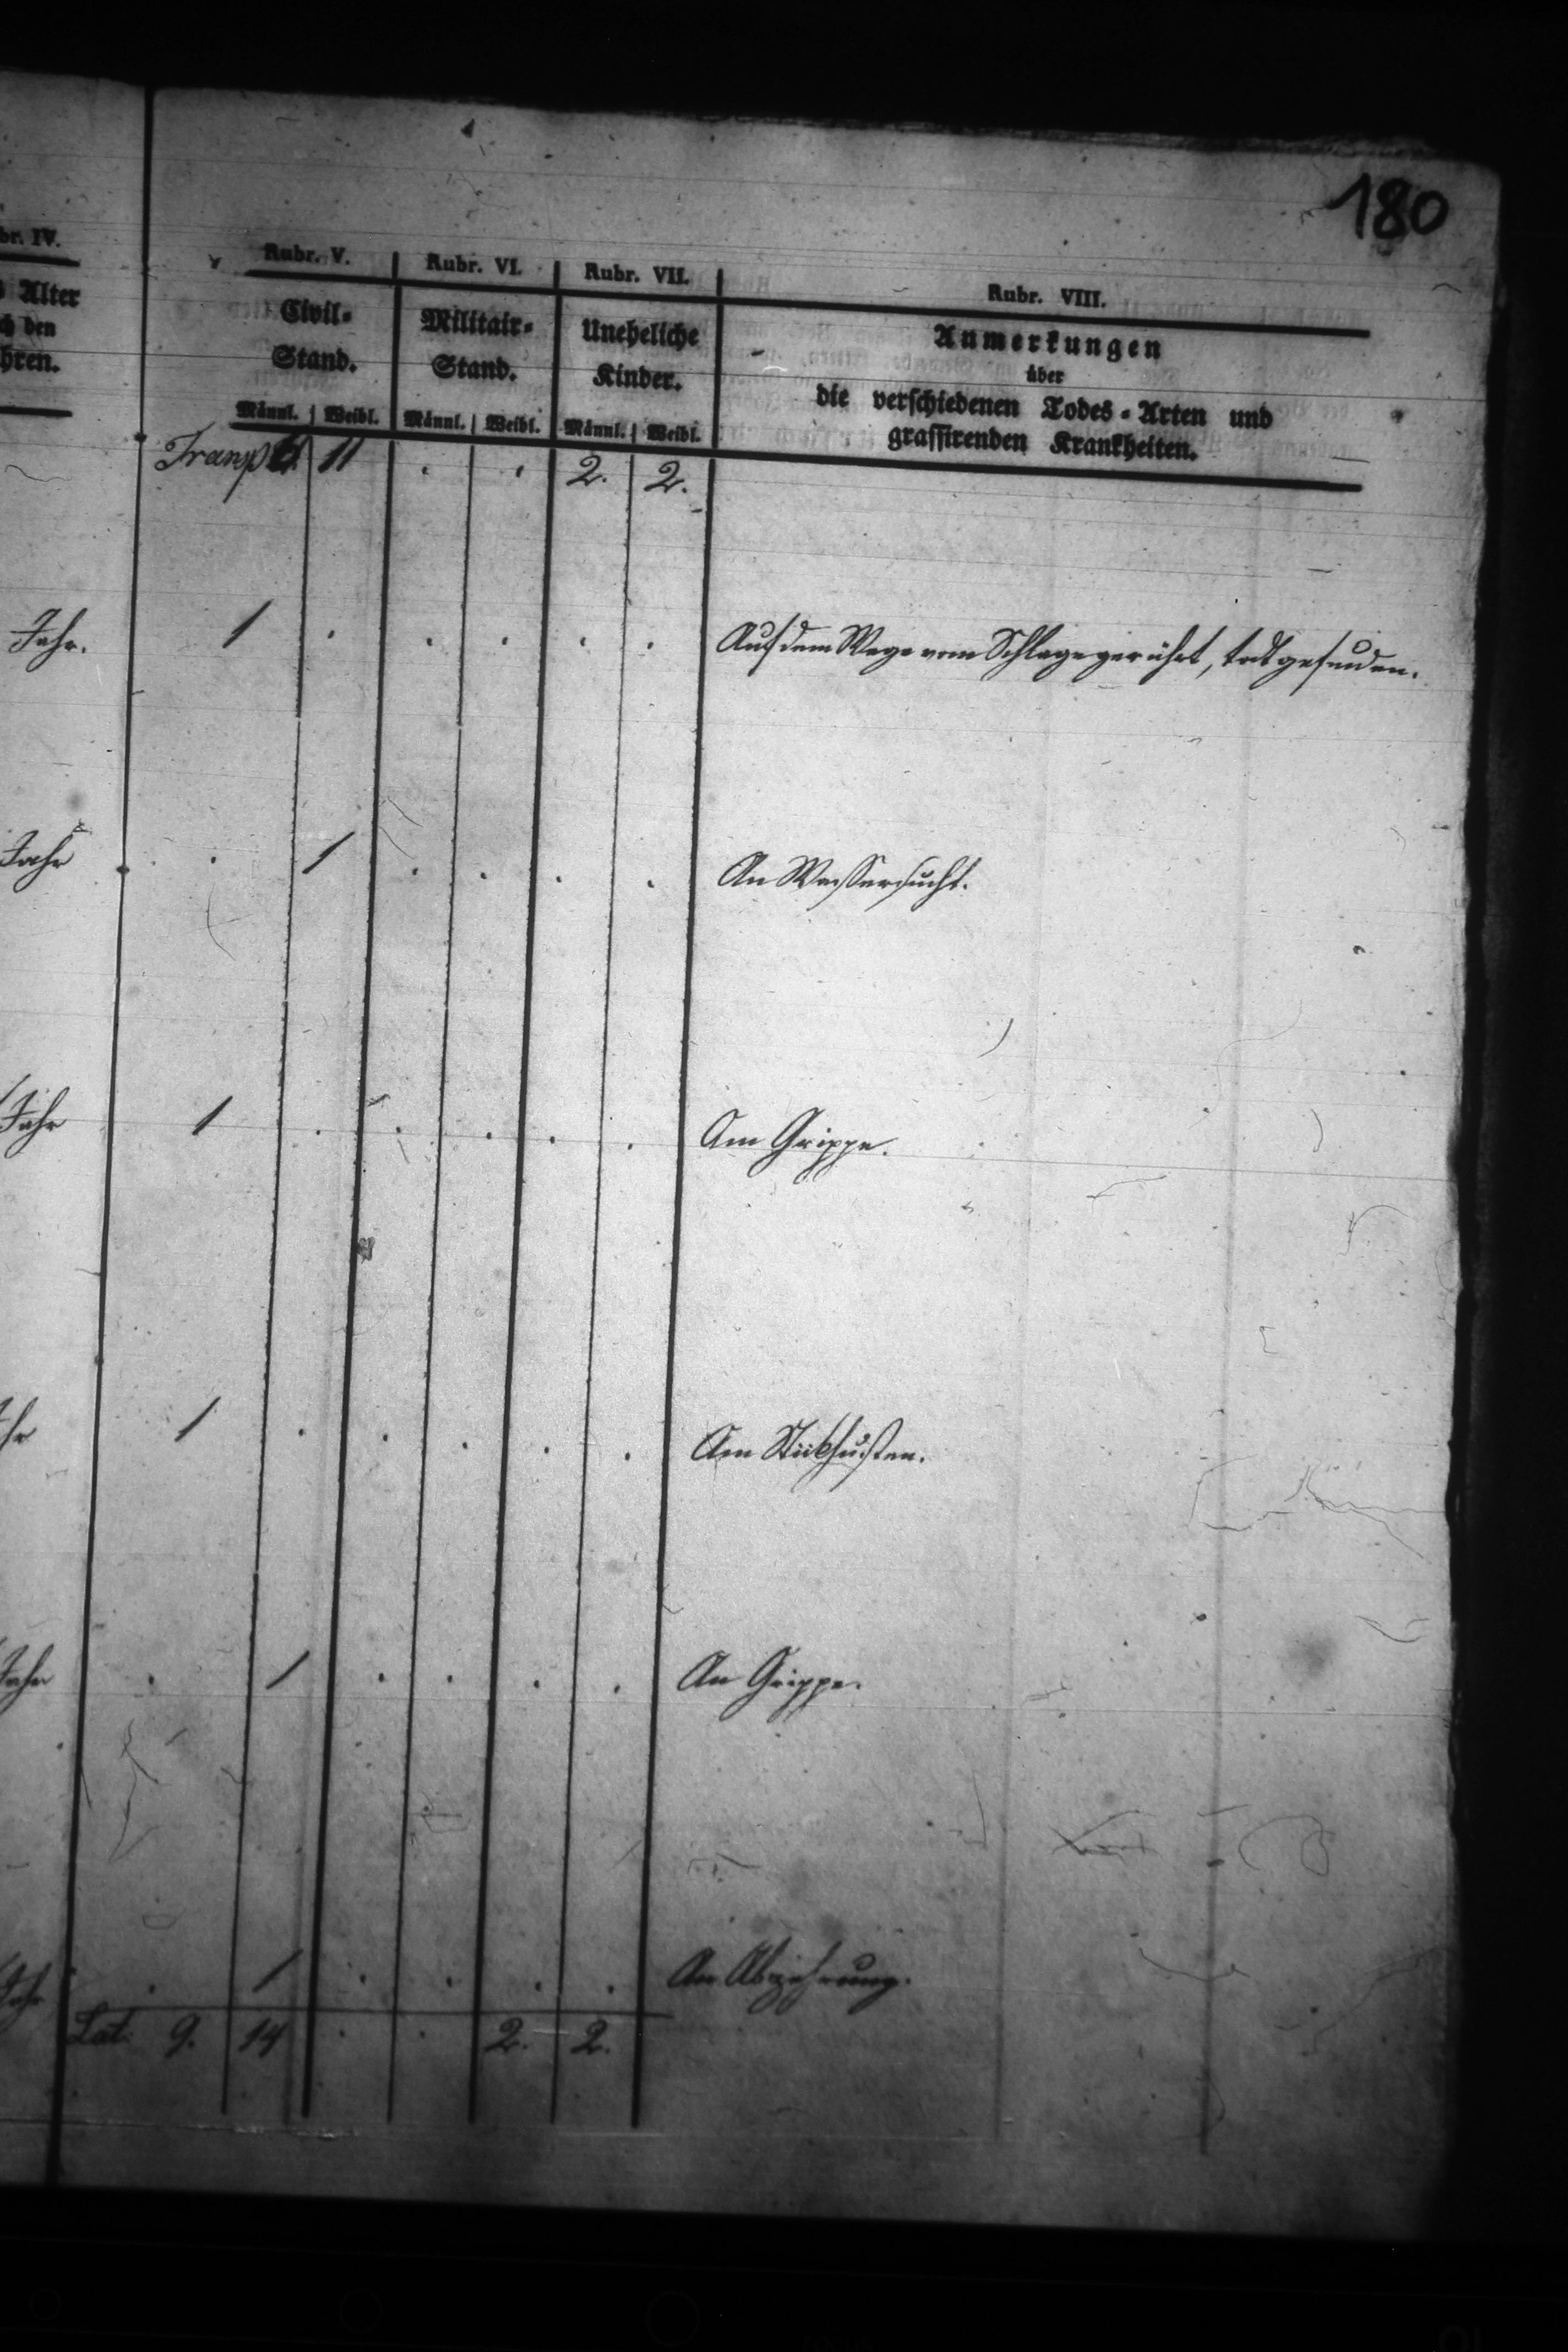 180
br. IV. Rubr. V. Rubr. VI. Rubr. VII. Rubr. VIII.
Alter
ch den
hren.
Civil-
Stand.
Militair-
Stand.
Uneheliche
Kinder.
Anmerkungen
über
die verschiedenen Todes-Arten und
grassirenden Krankheiten.
Männl. Weibl. Männl. Weibl. Männl. Weibl.
Transp 6. 11 . . 2. 2.
Jahr. 1 . . . . . Auf dem Wege vom Schlage gerührt, todt gefunden.
Jahr . 1 . . . . An Wassersucht.
Jahr 1 . . . . . Am Grippe.
hr 1 . . . . . Am Stickhusten.
Jahr . 1 . . . . An Grippe.
Jahr . 1 . . . . An Abzehrung.
Lat. 9. 14 . . 2. 2.